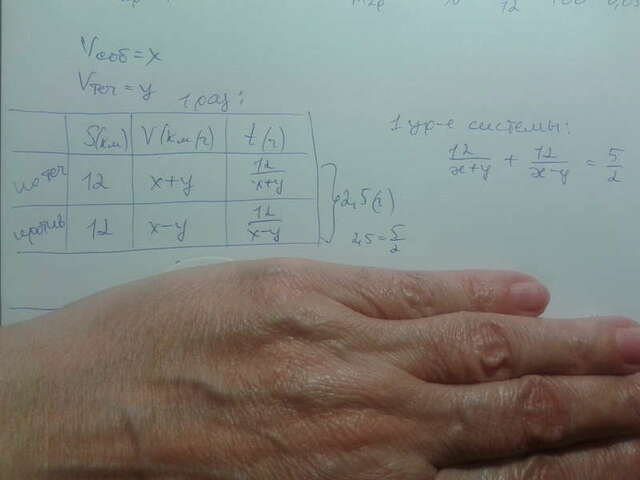 12 100
Vсоб = x
Vтеч = y
1 раз:
S(км) V(км/ч) t(ч)
по теч 12 x+y 12/x+y
против 12 x-y 12/x-y
2,5(ч)
2,5 = 5/2
1 ур-е системы:
12/x+y + 12/x-y = 5/2